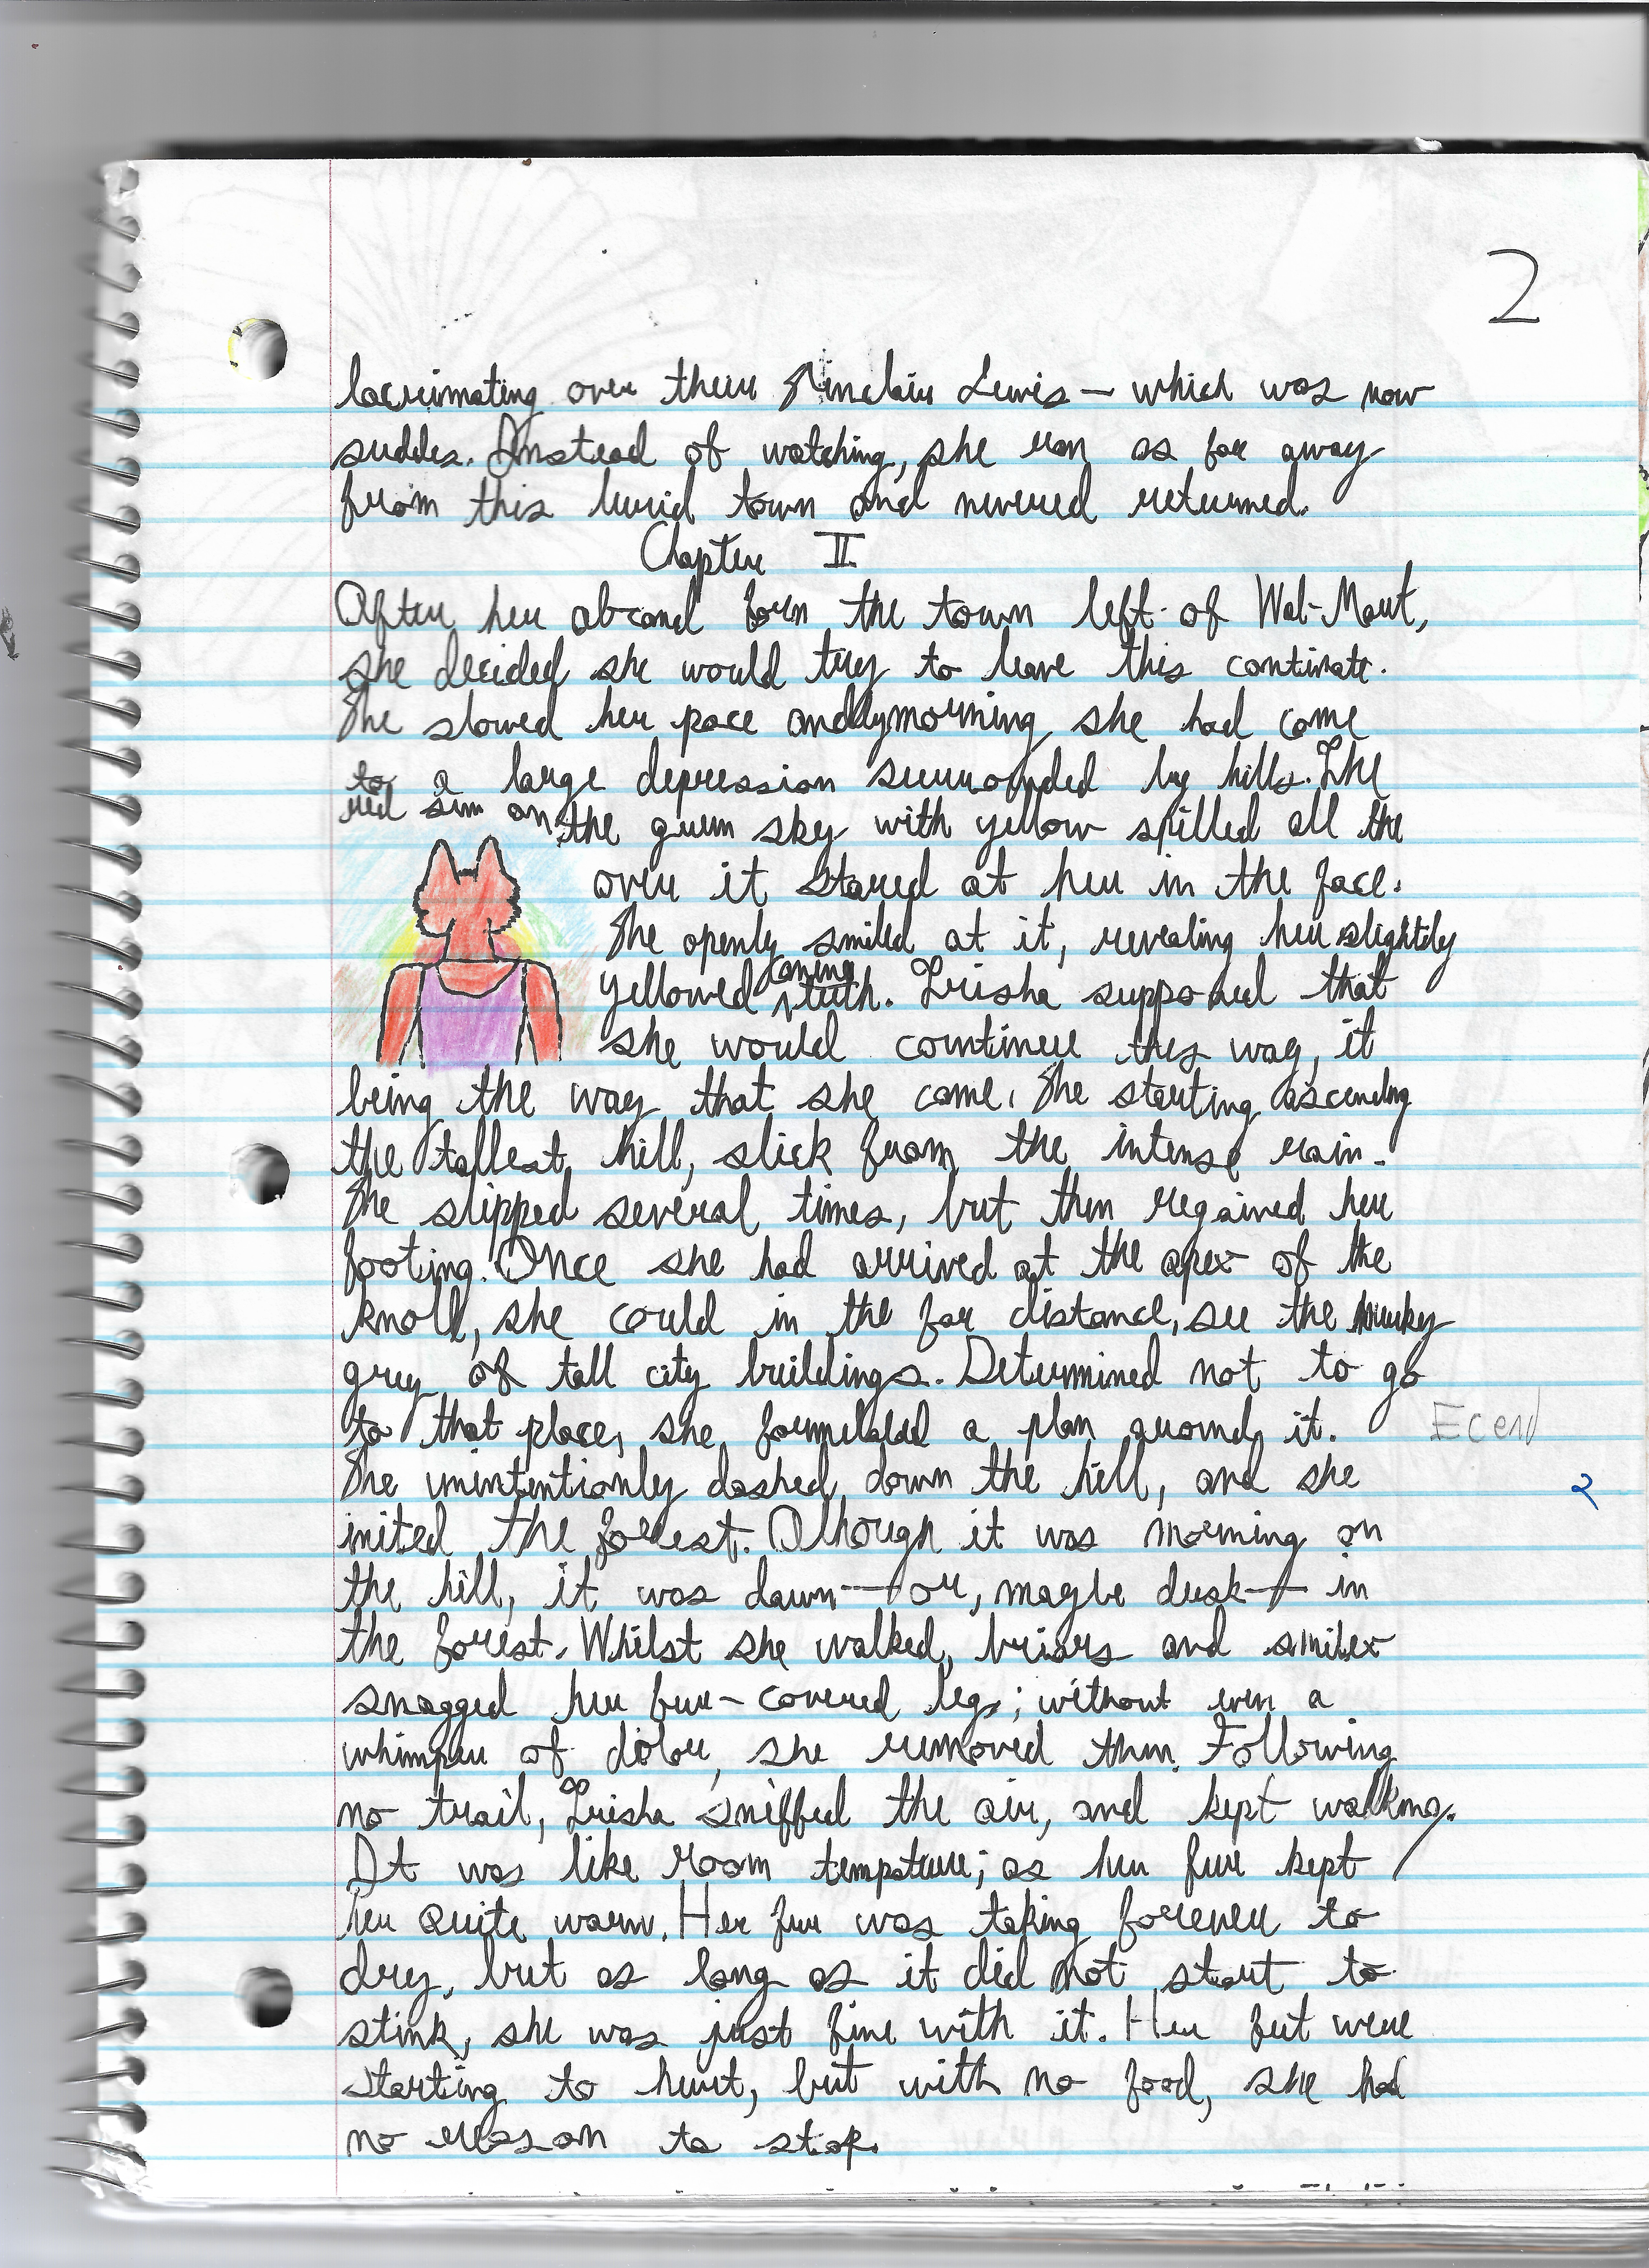 2
lacrimating over their Sinclair Lewis — which was now
suddes. Instead of watching, she ran as far away
from this lurid town and nevered returned.
Chapter II
After her abscond form the town left of Wal-Mart,
she decided she would try to leave this continate.
She slowed her pace and by morning she had come
to a large depression surrounded by hills. The
red sun on the green sky with yellow spilled all the
over it stared at her in the face.
She openly smiled at it, revealing her slightly
yellowed canine teeth. Trisha supposed that
she would continue this way, it
being the way that she came. She starting ascending
the tallest hill, slick from the intense rain.
She slipped several times, but then regained her
footing. Once she had arrived at the apex of the
knoll, she could in the far distance, see the murky
grey of tall city buildings. Determined not to go
to that place, she formulated a plan around it.
She unintentionly dashed down the hill, and she
inited the forest. Although it was morning on
the hill, it was dawn — or, maybe dusk — in
the forest. Whilst she walked, briars and smilex
snagged her fur-covered legs; without even a
whimper of dolor, she removed them. Following
no trail, Trisha sniffed the air, and kept walking.
It was like room tempature; as her fur kept
her quite warm. Her fur was taking forever to
dry, but as long as it did not start to
stink, she was just fine with it. Her feet were
starting to hurt, but with no food, she had
no reason to stop.